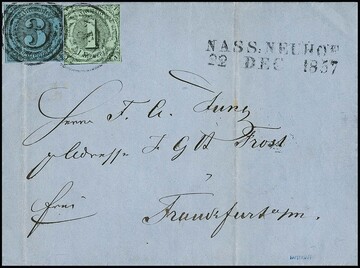 3
1
NASS: NEUHOF
22 DEC 1857
Herrn F. A. Jung
p Adresse J G H Frost
frei
Frankfurt a/m.